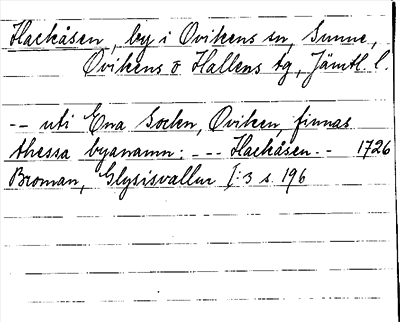 Hackåsen, by i Ovikens sn, Sunne,
Ovikens o Hallens tg, Jämtl. l.
-- uti Ena Socken, Oviken, finnas
thessa byanamn: --- Hackåsen. - 1726
Broman, Glysisvallur I:3 s. 196